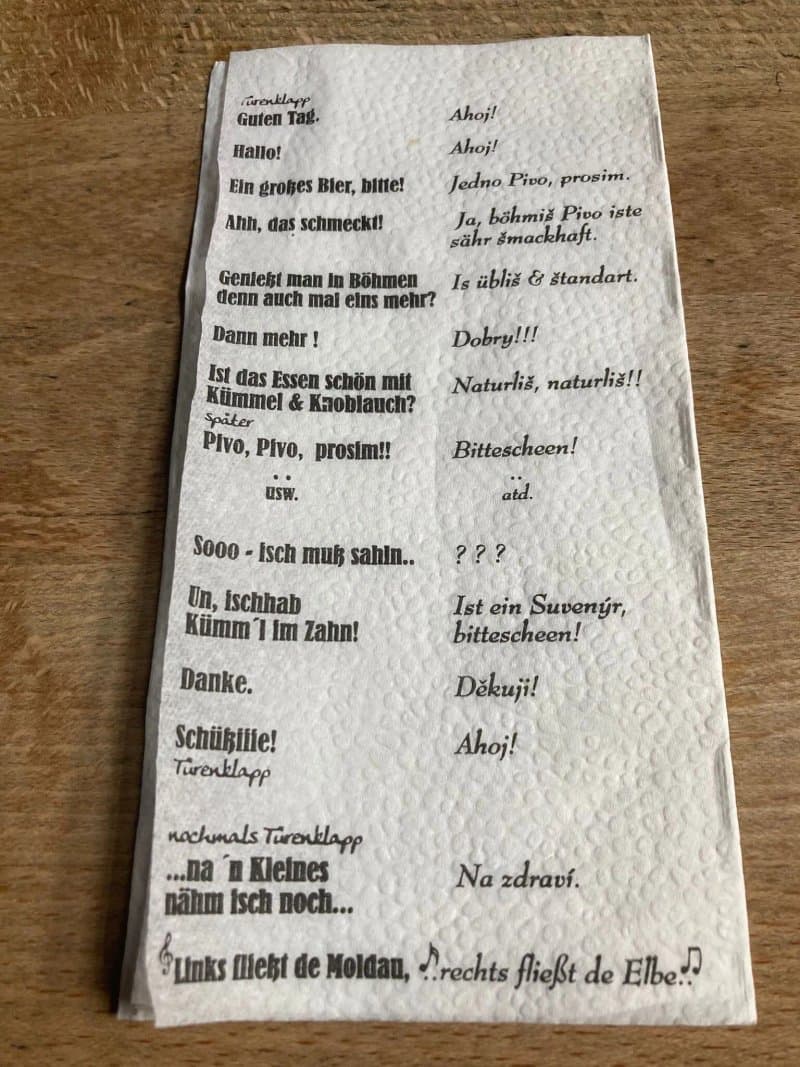 Türenklapp
Guten Tag. Ahoj!
Hallo! Ahoj!
Ein großes Bier, bitte! Jedno Pivo, prosim.
Ahh, das schmeckt! Ja, böhmiš Pivo iste
sähr šmackhaft.
Genießt man in Böhmen
denn auch mal eins mehr? Is übliš & štandart.
Dann mehr ! Dobry!!!
Ist das Essen schön mit
Kümmel & Knoblauch? Naturliš, naturliš!!
später
Pivo, Pivo, prosim!! Bittescheen!
usw. atd.
Sooo - isch muß sahln.. ? ? ?
Un, ischhab
Kümm´l im Zahn! Ist ein Suvenýr,
bittescheen!
Danke. Děkuji!
Schüßiiie! Ahoj!
Türenklapp
nochmals Türenklapp
...na ´n Kleines
nähm isch noch... Na zdraví.
Links fließt de Moldau, ..rechts fließt de Elbe..